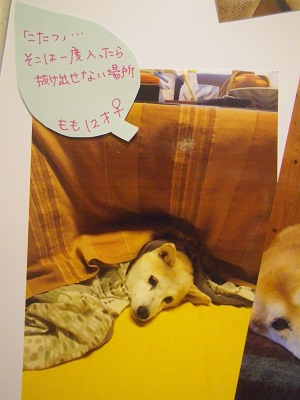 「こたつ」…
そこは一度入ったら
抜け出せない場所
もも 12才♀